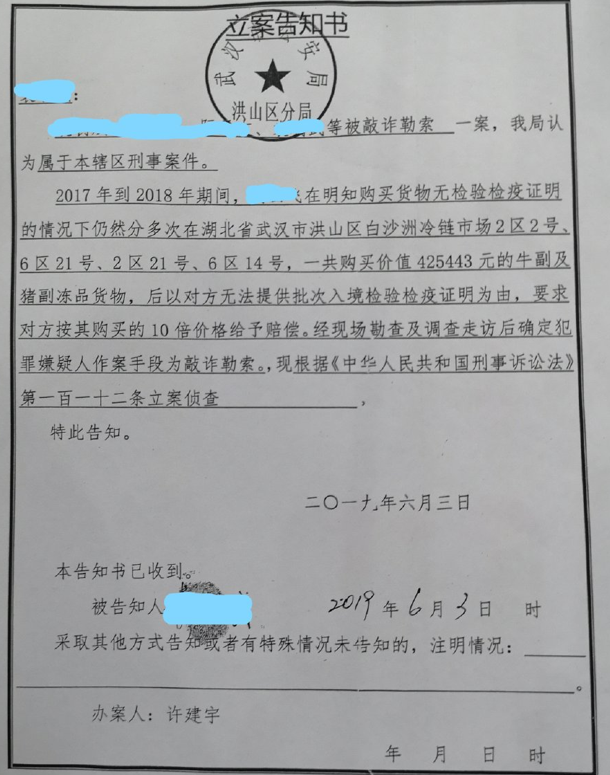 立案告知书
武汉 安局
洪山区分局
:
等被敲诈勒索 一案，我局认
为属于本辖区刑事案件。
2017年到2018年期间， 在明知购买货物无检验检疫证明
的情况下仍然分多次在湖北省武汉市洪山区白沙洲冷链市场2区2号、
6区21号、2区21号、6区14号，一共购买价值425443元的牛副及
猪副冻品货物，后以对方无法提供批次入境检验检疫证明为由，要求
对方按其购买的10倍价格给予赔偿。经现场勘查及调查走访后确定犯
罪嫌疑人作案手段为敲诈勒索。，现根据《中华人民共和国刑事诉讼法》
第一百一十二条立案侦查 ，
特此告知。
二〇一九年六月三日
本告知书已收到。
被告知人 2019年6月3日 时
采取其他方式告知或者有特殊情况未告知的，注明情况：
。
办案人：许建宇
年 月 日 时